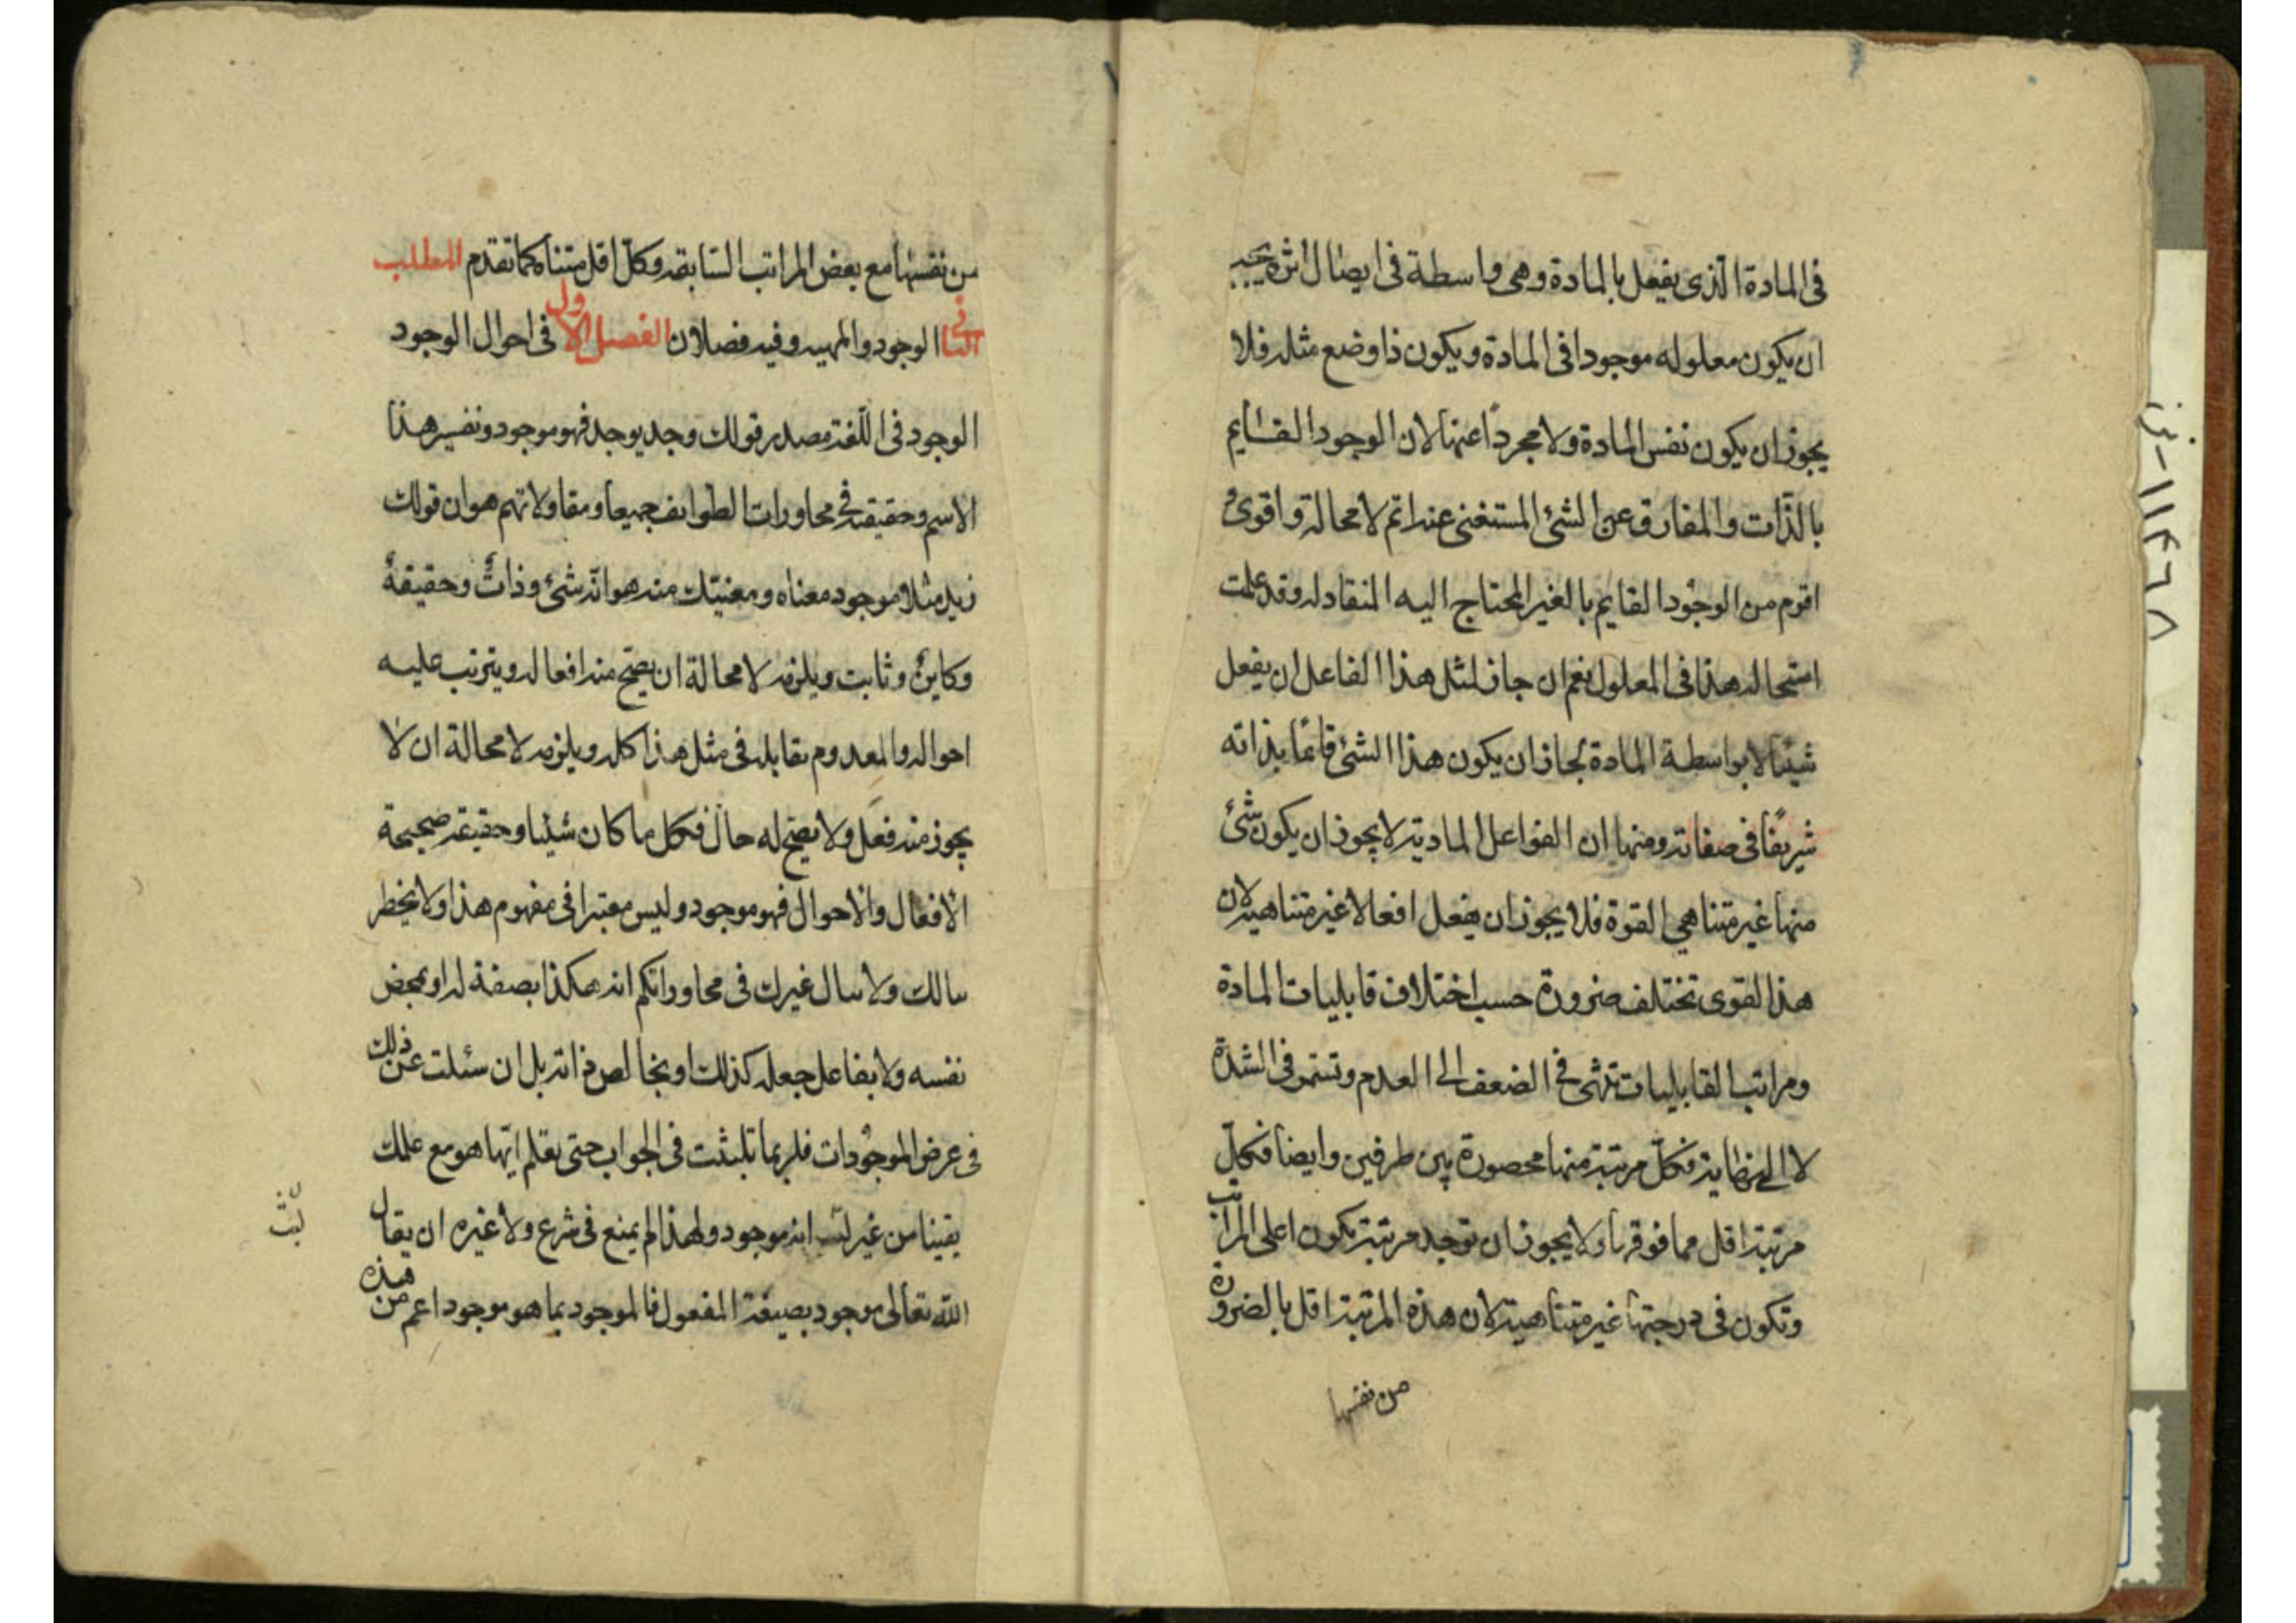 فى المادة الذى يفعل بالمادة وهى واسطة فى ايصال اثره يجب
ان يكون معلوله موجودا فى المادة ويكون ذا وضع مثله فلا
يجوز ان يكون نفس المادة ولا مجرداً عنها لان الوجود القايم
بالذّات والمفارق عن الشئ المستغنى عنه اتم لا محالة واقوى و
اقوم من الوجود القايم بالغير المحتاج اليه المنقاد له وقد علمت
استحاله هذا فى المعلول نعم ان جاز لمثل هذا الفاعل ان يفعل
شيئا لا بواسطة المادة لجاز ان يكون هذا الشئ قائمًا بذاته
شريفًا فى صفاته ومنها ان الفواعل المادية لا يجوز ان يكون شئ
منها غير متناهى القوة فلا يجوز ان يفعل افعالا غير متناهيه لان
هذا لقوى تختلف ضرورة حسب اختلاف قابليات المادة
ومراتب القابليات تنتهى فى الضعف الى العدم وتستمر فى الشدّة
لا الى نهاية فكلّ مرتبة منها محصورة بين طرفين وايضا فكلّ
مرتبة اقل مما فوقها ولا يجوز ان توجد مرتبة تكون اعلى المراتب
وتكون فى درجتها غير متناهية لان هذه المرتبة اقل بالضرورة
من نفسها
من نفسها مع بعض المراتب السّابقه وكلّ اقل متناه كما تقدم المطلب
الثانى الوجود والمهيه وفيه فصلان الفصل الاول فى احوال الوجود
الوجود فى اللّغة مصدر قولك وجد يوجد فهو موجود ونفسر هذا
الاسم وحقيقته فى محاورات الطوايف جميعا ومقاولاتهم هو ان قولك
زيد مثلا موجود معناه ومعنيّك منه هو انّه شئ وذاتٌ وحقيقةٌ
وكاينٌ وثابت ويلزمه لا محالة ان يصحّ منه افعاله ويترتب عليه
احواله والمعدوم يقابله فى مثل هذا كله ويلزمه لا محالة ان لا
يجوز منه فعل ولا يصح له حال فكل ما كان شيئا وحقيقه صحيحة
الافعال والاحوال فهو موجود وليس معتبرا فى مفهوم هذا ولا يخطر
ببالك ولا ببال غيرك فى محاوراتكم انه هكذا بصفة له او بمحض
نفسه ولا بفاعل جعله كذلك او بخالص ذاته بل ان سئلت عن ذلك
فى عرض الموجودات فلربما تلبثت فى الجواب حتى تعلم ايّها هو مع علمك
يقينا من غير لبث انه موجود ولهذا لم يمنع فى شرع ولا غيره ان يقال
الله تعالى موجود بصيغة المفعول فالموجود بما هو موجود اعم من هذه
لبث